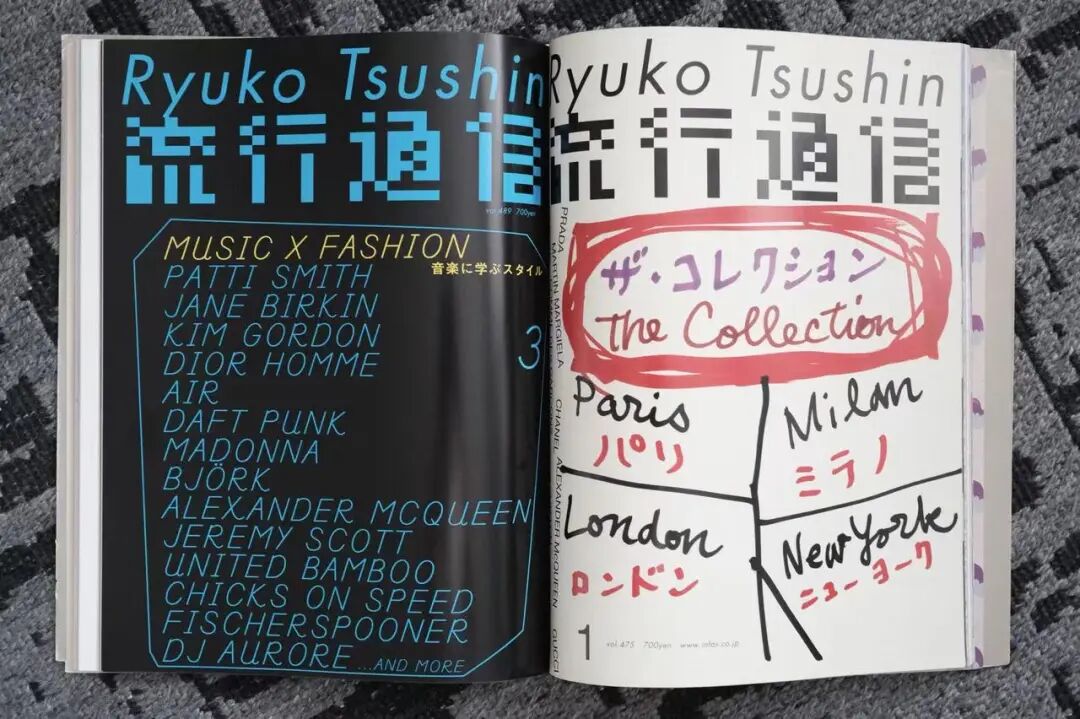 Ryuko Tsushin
流行通信
vol.489 700yen
MUSIC X FASHION
音楽に学ぶスタイル
PATTI SMITH
JANE BIRKIN
KIM GORDON
DIOR HOMME
3
AIR
DAFT PUNK
MADONNA
BJÖRK
ALEXANDER MCQUEEN
JEREMY SCOTT
UNITED BAMBOO
CHICKS ON SPEED
FISCHERSPOONER
DJ AURORE ...AND MORE
Ryuko Tsushin
流行通信
ザ・コレクション
The Collection
PRADA MARTIN MARGIELA CHANEL ALEXANDER McQUEEN GUCCI
Paris
パリ
Milan
ミラノ
London
ロンドン
New York
ニューヨーク
1 vol.475 700yen www.infas.co.jp